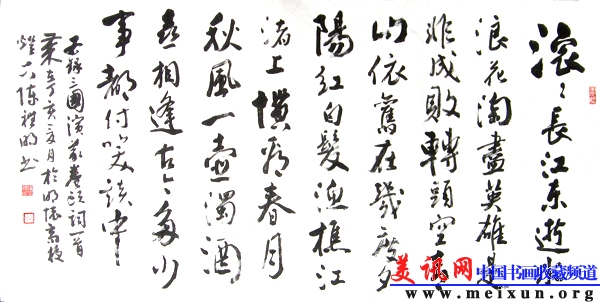 滚〻長江东逝水
浪花淘盡英雄是
非成敗轉頭空青
山依舊在幾度夕
陽红白髮渔樵江
渚上慣看春月
秋風一壶濁酒
喜相逢古今多少
事都付笑談中
録三國演義卷頭詞一首
丁亥夏月於明德高校
燈下陳明书
美讯网 中国书画收藏频道
www.meixun.org